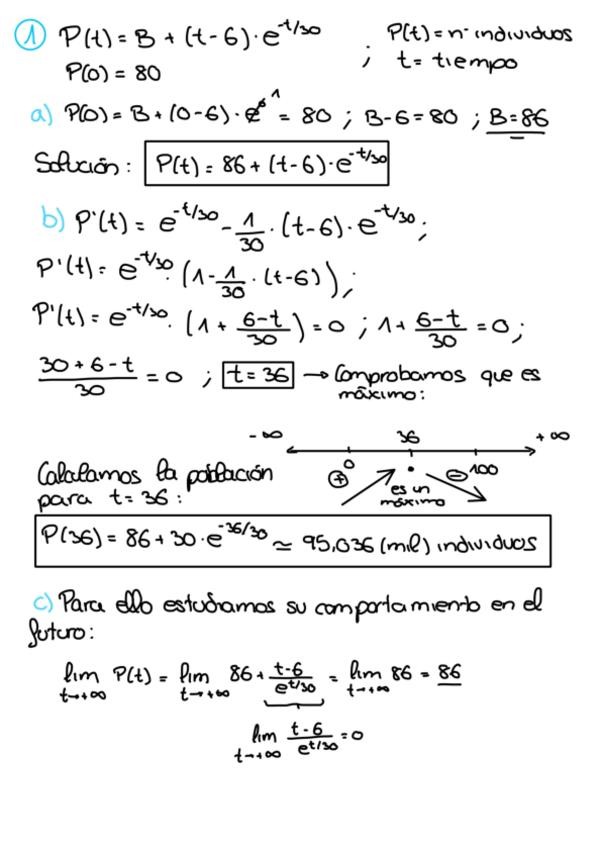 ① P(t) = B + (t-6)·e^(-t/30) ; P(t) = nº individuos
P(0) = 80 t = tiempo
a) P(0) = B + (0-6)·e^0 1 = 80 ; B-6 = 80 ; B = 86
Solución: P(t) = 86 + (t-6)·e^(-t/30)
b) P'(t) = e^(-t/30) - 1/30 · (t-6)·e^(-t/30);
P'(t) = e^(-t/30)·(1 - 1/30 · (t-6));
P'(t) = e^(-t/30)·(1 + (6-t)/30) = 0 ; 1 + (6-t)/30 = 0;
(30+6-t)/30 = 0 ; t = 36 → Comprobamos que es
máximo:
-∞ 36 +∞
0 100
⊕ ⊖
es un
máximo
Calculamos la población
para t = 36:
P(36) = 86 + 30·e^(-36/30) ≃ 95,036 (mil) individuos
c) Para ello estudiamos su comportamiento en el
futuro:
lim t→+∞ P(t) = lim t→+∞ 86 + (t-6)/e^(t/30) = lim t→+∞ 86 = 86
lim t→+∞ (t-6)/e^(t/30) = 0